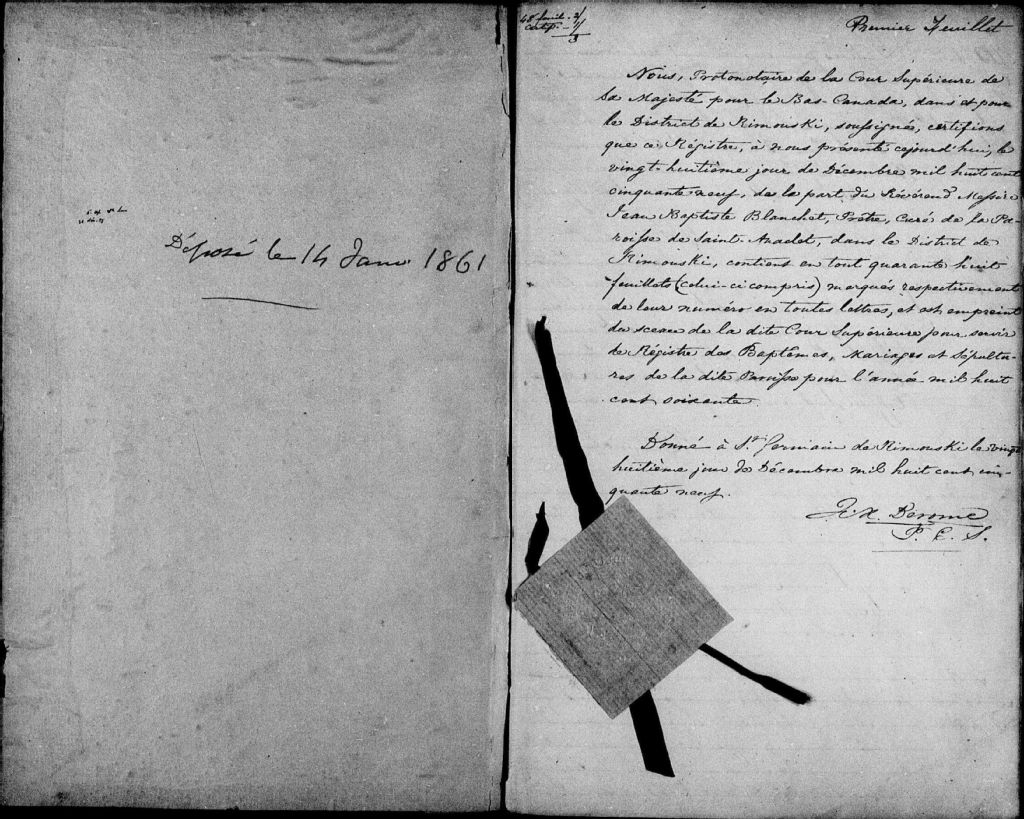 Déposé le 14 Janv 1861
48 feuil. 2/
certif. - 1/
3
Premier Feuillet
Nous, Protonotaire de la Cour Supérieure de
Sa Majesté pour le Bas-Canada, dans et pour
le District de Rimouski, soussigné, certifions
que ce Régistre, à nous présenté cejourd'hui, le
vingt-huitième jour de Décembre mil huit cent
cinquante-neuf, de la part du Révérend Messire
Jean Baptiste Blanchet, Prêtre, Curé de la Pa-
roisse de Saint-Anaclet, dans le District de
Rimouski, contient en tout quarante huit
feuillets (celui-ci compris) marqués respectivement
de leur numéro en toutes lettres, et est empreint
du sceau de la dite Cour Supérieure pour servir
de Régistre des Baptêmes, Mariages et Sépultu-
res de la dite Paroisse pour l'année mil huit
cent soixante.
Donné à St Germain de Rimouski le vingt
huitième jour de Décembre mil huit cent cin-
quante neuf.
Derome
P. C. S.